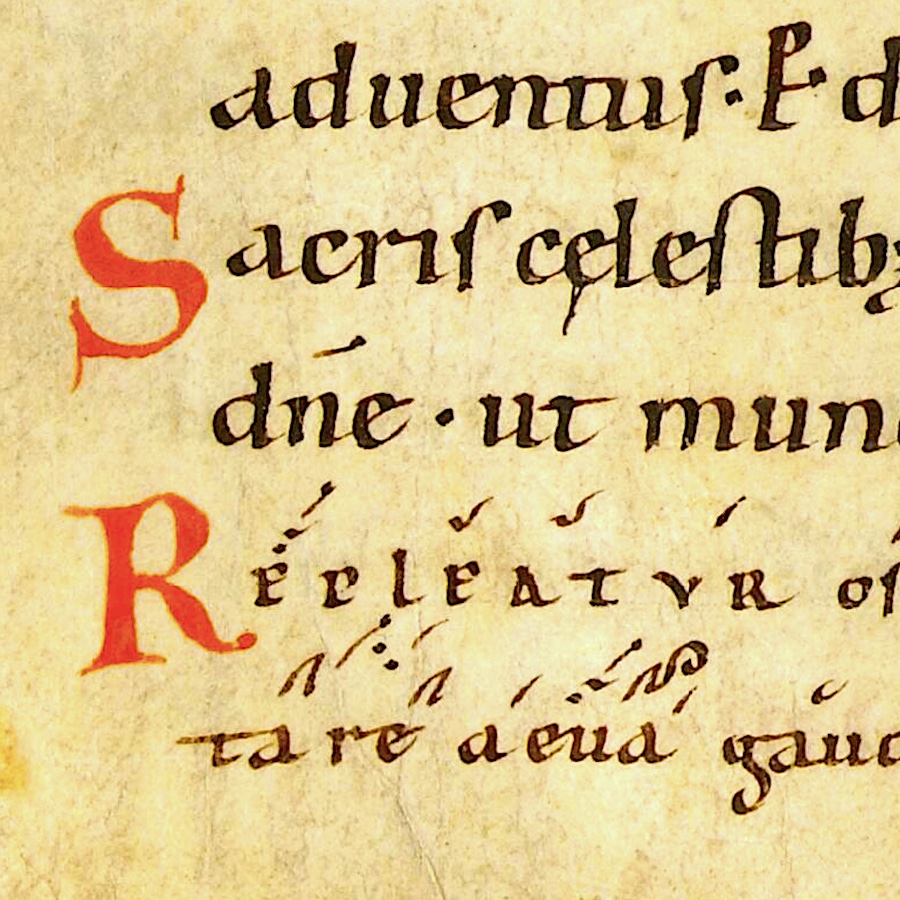 aduentus· P· d
Sacris cęlestib;
dn̄e · ut mun
REPLEATVR os
tare aeuia gaud